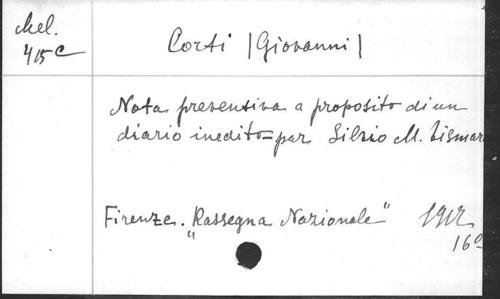 Mel. Corti (Giovanni)
415 C
Nota preventiva a proposito di un
diario inedito = par Silvio M. Lismar
Firenze. "Rassegna Nazionale" 1912
16°